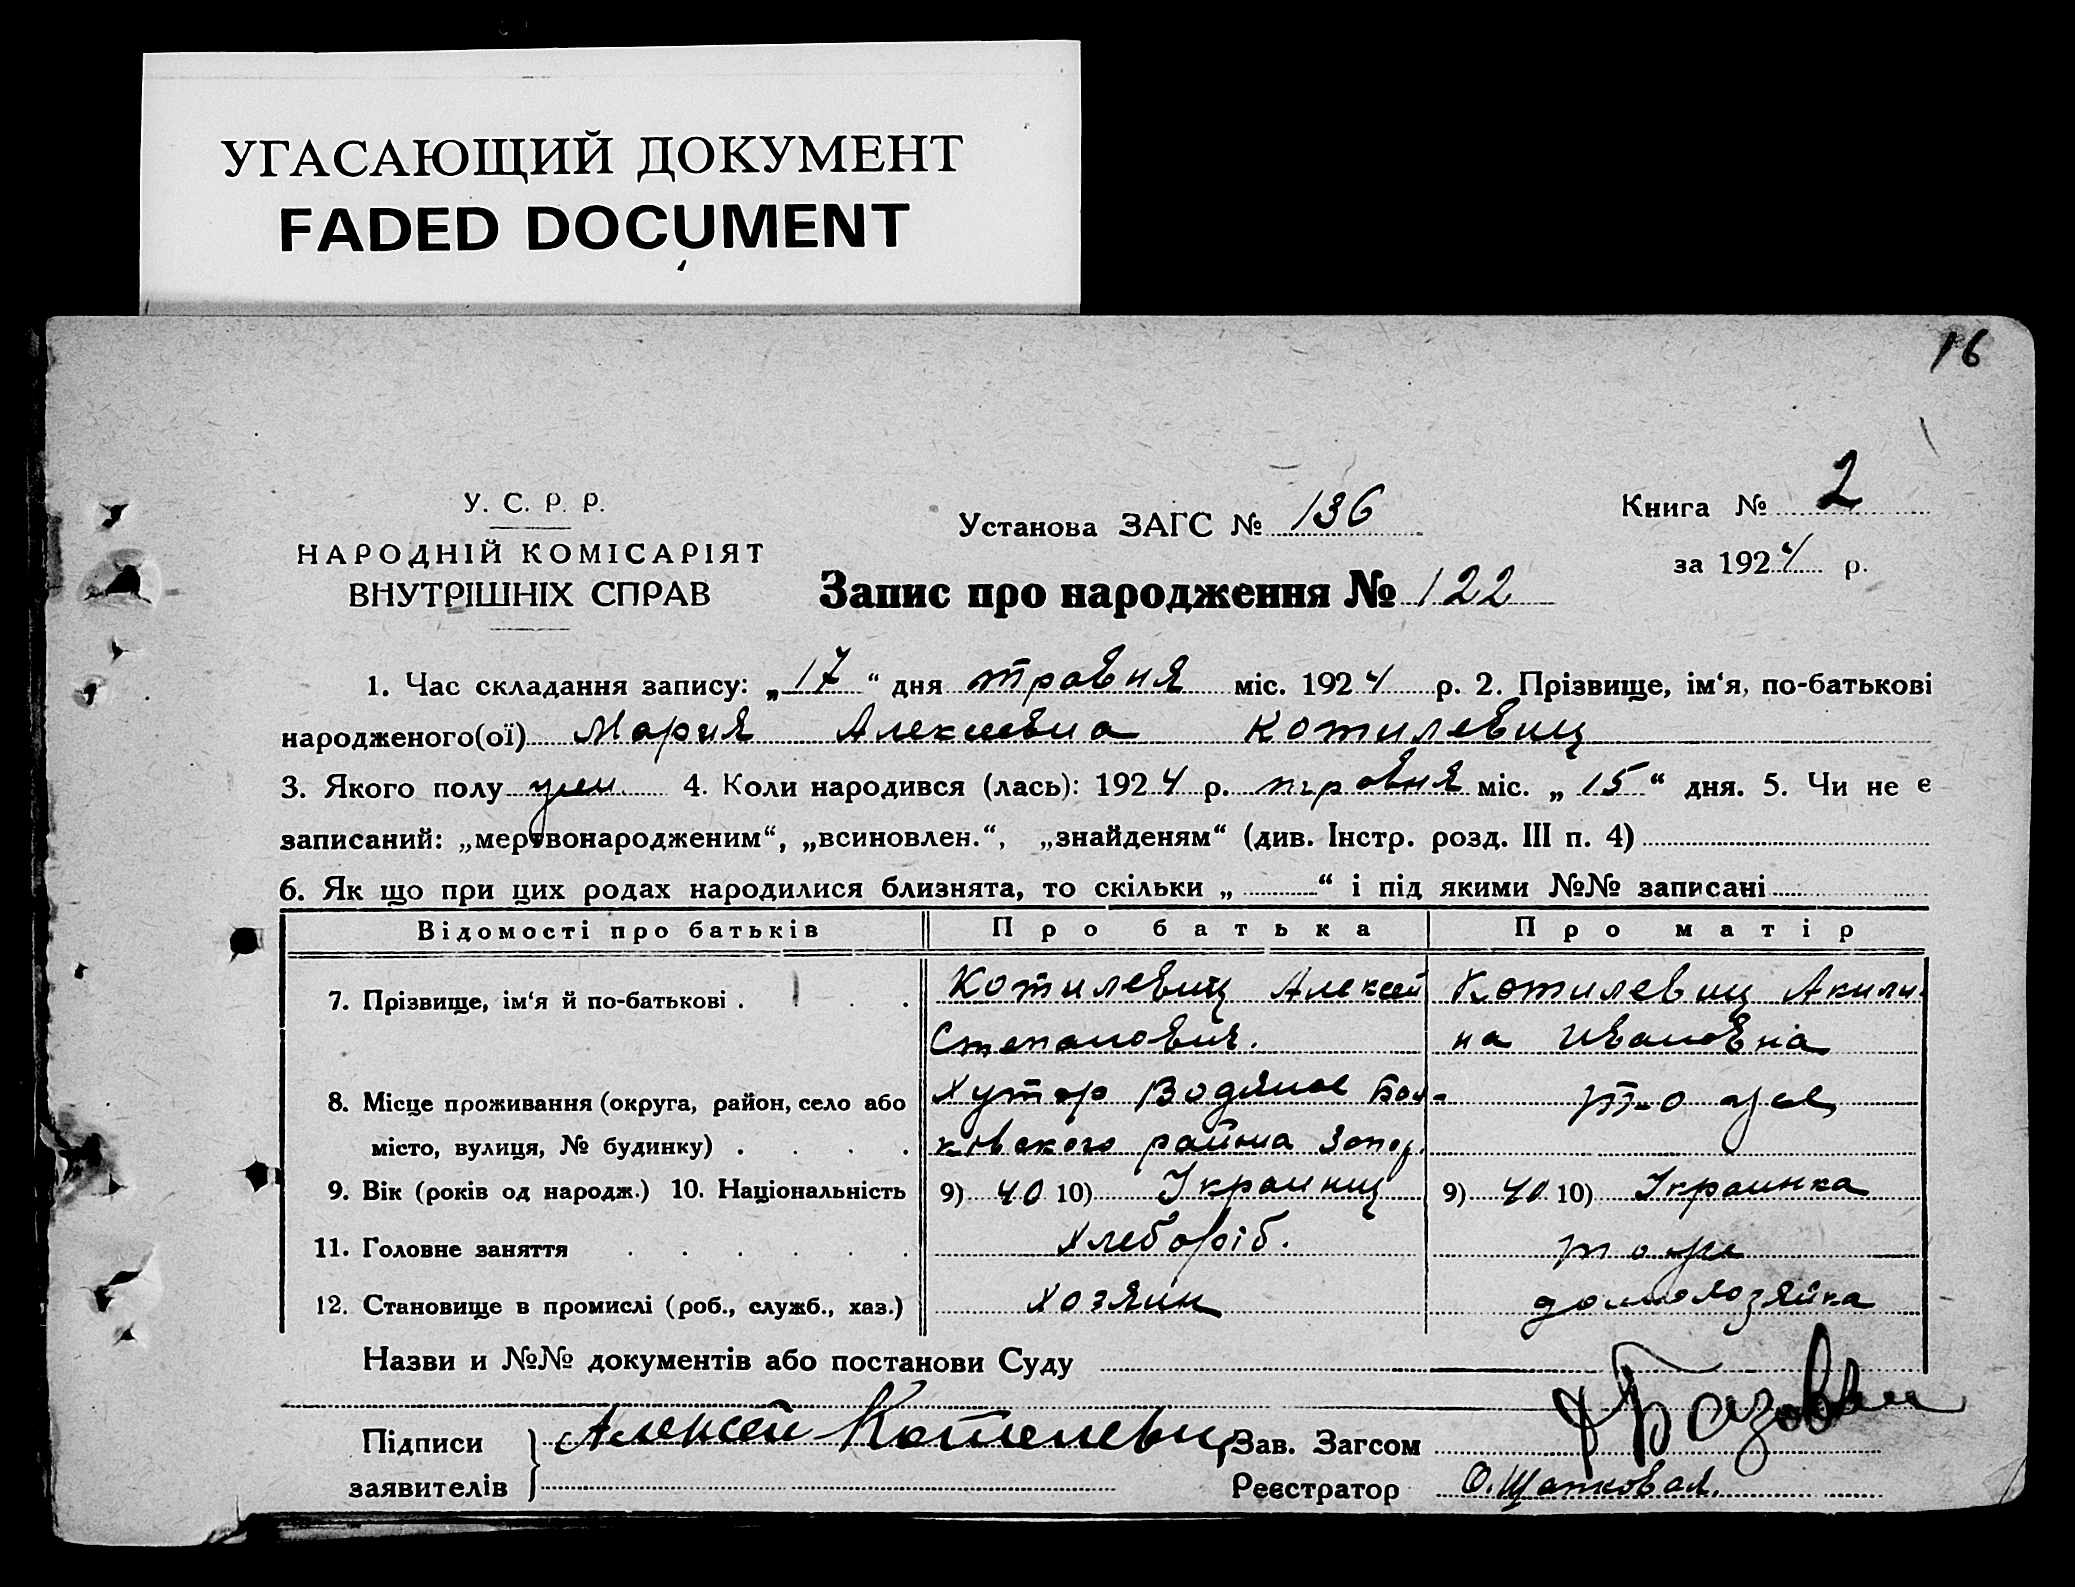 УГАСАЮЩИЙ ДОКУМЕНТ
FADED DOCUMENT
16
У. С. Р. Р.
НАРОДНІЙ КОМІСАРІЯТ
ВНУТРІШНІХ СПРАВ
Установа ЗАГС № 136
Книга № 2
за 1924 р.
Запис про народження № 122
1. Час складання запису: „17“ дня травня міс. 1924 р. 2. Прізвище, ім‘я, по-батькові
народженого(ої) Мария Алексеевна Котилевиц
3. Якого полу жен. 4. Коли народився (лась): 1924 р. травня міс. „15“ дня. 5. Чи не є
записаний: „мертвонародженим“, „всиновлен.“, „знайденям“ (див. Інстр. розд. III п. 4)
6. Як що при цих родах народилися близнята, то скільки „ “ і під якими №№ записані
Відомості про батьків Про батька Про матір
7. Прізвище, ім‘я й по-батькові . Котилевиц Алексей Степанович. Котилевиц Акилина Ивановна
8. Місце проживання (округа, район, село або місто, вулиця, № будинку) . Хутор Водяное районна Запор. то же
9. Вік (років од народж.) 10. Національність 9) 40 10) Украинц 9) 40 10) Украинка
11. Головне заняття Хлебороіб. то же
12. Становище в промислі (роб., служб., хаз.) хозяин домохозяйка
Назви и №№ документів або постанови Суду
Підписи заявителів Алексей Котелевиц
Зав. Загсом
Реєстратор О.